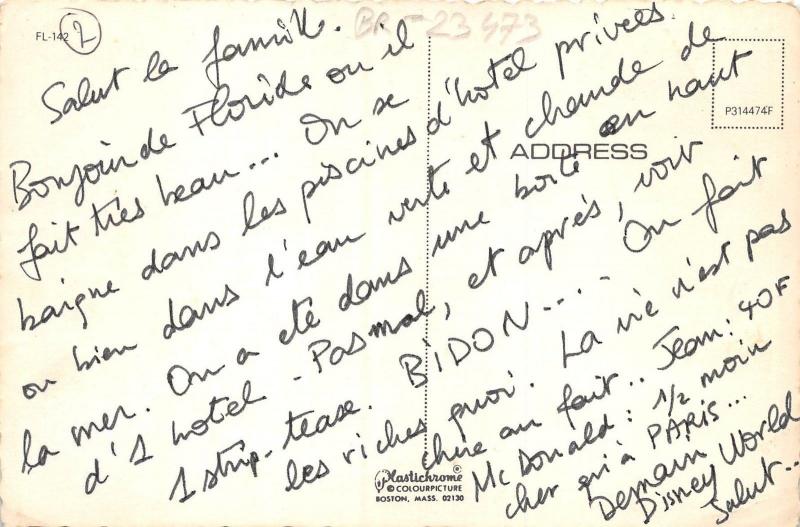 FL-142
2
BR-23 473
P314474F
ADDRESS
Salut la famille.
Bonjour de Floride ou il
fait très beau... On se
baigne dans les piscines d'hotel privées.
ou bien dans l'eau verte et chaude de
la mer. On a été dans une boite en haut
d'1 hotel - Pas mal, et après, voir
1 strip-tease. BIDON..... On fait
les riches quoi. La vie n'est pas
chère au fait.. Jean: 40F
Mc Donald: 1/2 moin
cher qu'à PARIS...
Demain World
Disney
Salut...
Plastichrome
© COLOURPICTURE
BOSTON, MASS. 02130